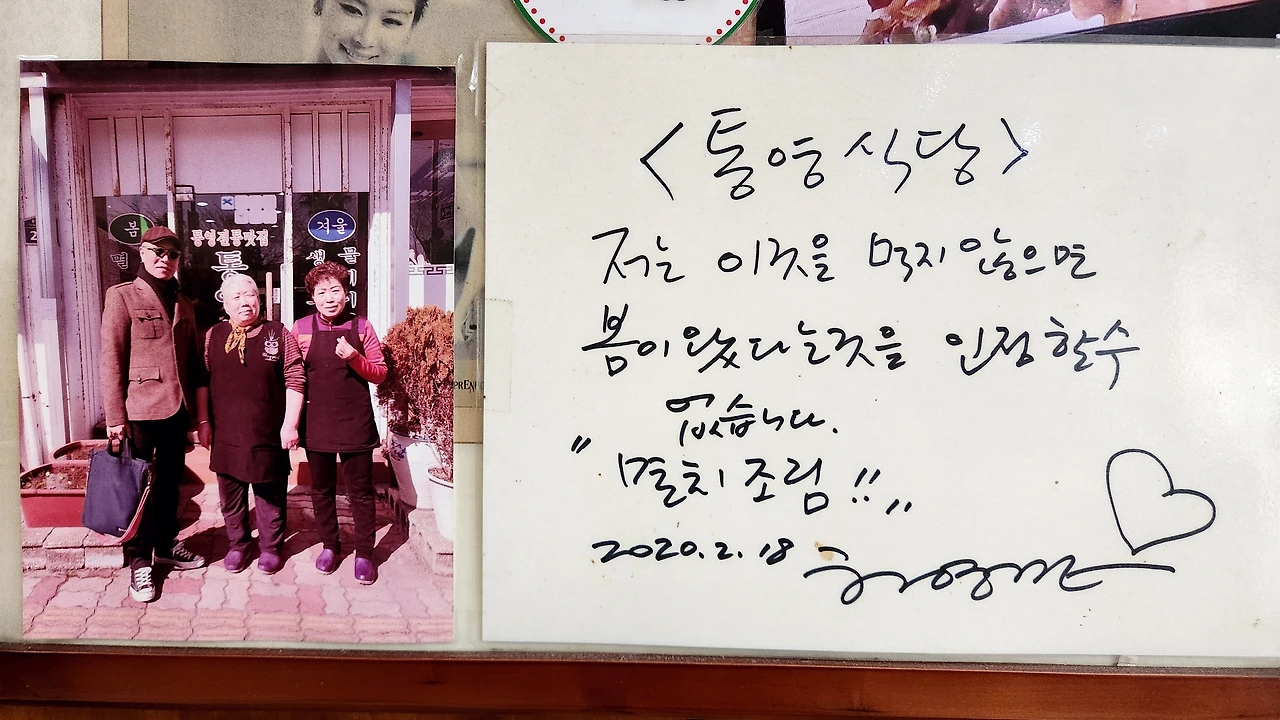 봄
겨울
통영전통맛집
멸
통
생 물
<통영식당>
저는 이것을 먹지 않으면
봄이 왔다는것을 인정할수
없습니다.
"멸치조림!!"
2020. 2. 18